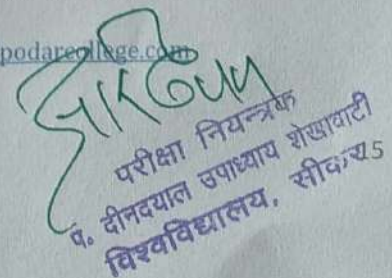 podarcollege.com
परीक्षा नियन्त्रक
पं. दीनदयाल उपाध्याय शेखावाटी
विश्वविद्यालय, सीकर